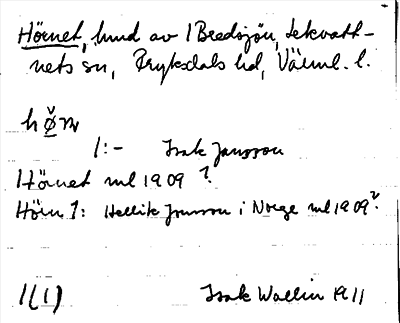 Hörnet, hmd av 1 Bredsjön, Lekvatt-
nets sn, Fryksdals hd, Värml. l.
1:- Isak Jansson
Hörnet ml 1909
Hörn 1: Hellik Jonsson i Norge ml 1909
1(1) Isak Wallin 1911